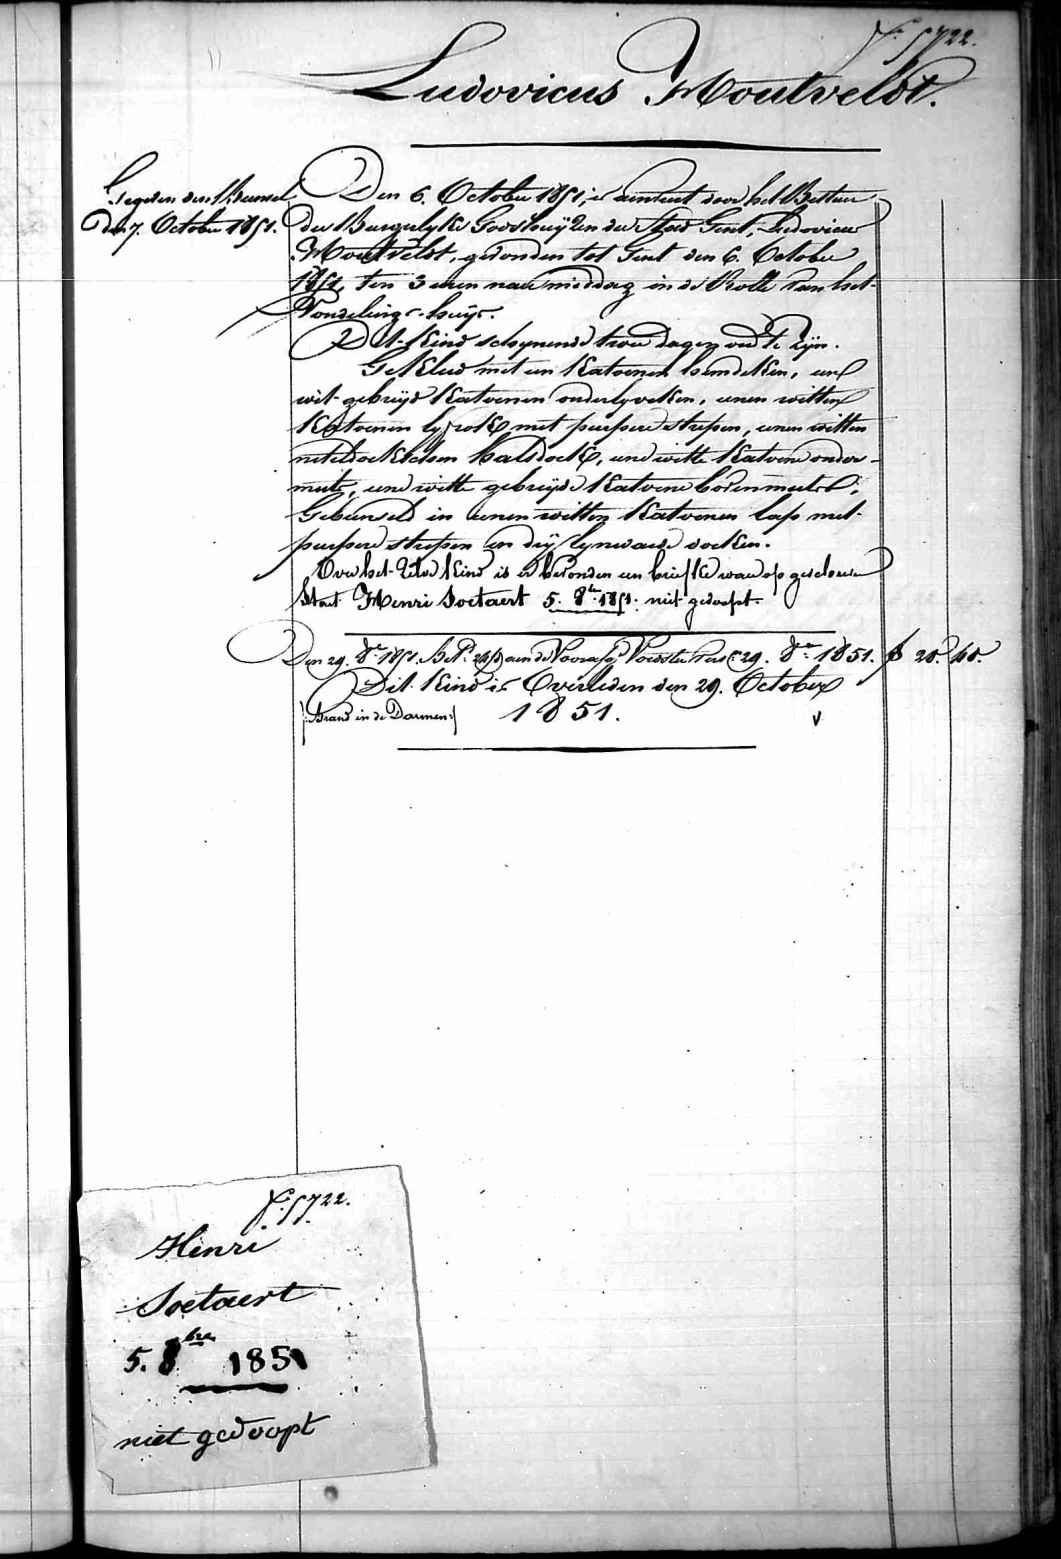 F.º 5722.
Ludovicus Moutveldt.
Gegeven den Bunsel
den 7. October 1851.
Den 6. October 1851, is aenveert door het Bestuer
der Burgerlyke Godshuyzen der Stad Gent, Ludovicus
Moutveldt, gevonden tot Gent den 6. October
1851, ten 3 uren naer middag in de Rolle van het
Vondelings-huys.
Dit kind schynende twee dagen oud te zyn.
Gekleed met een katoenen hemdeken, een
wit gebryd katoenen onderlyveken, eenen witten
katoenen lyfrok met purpere strepen, eenen witten
neteldoekschen halsdoek, eene witte katoene onder-
muts, eene witte gebryde katoene bovenmuts;
Gebunseld in eenen witten katoenen lap met
purpere strepen en dry lynwaede doeken.
Over het zelve kind is er bevonden een briefke waer op geschreven
staet Henri Soetaert 5. 8bre 1851. niet gedoopt.
Den 29. 8bre 1851. aen de Voorsz. Voedster 29. 8bre 1851. f 20. 40.
Dit kind is Overleden den 29. October
(: Brand in de Darmen :) 1851. v
F.º 5722.
Henri
Soetaert
5. 8bre 1851
niet gedoopt